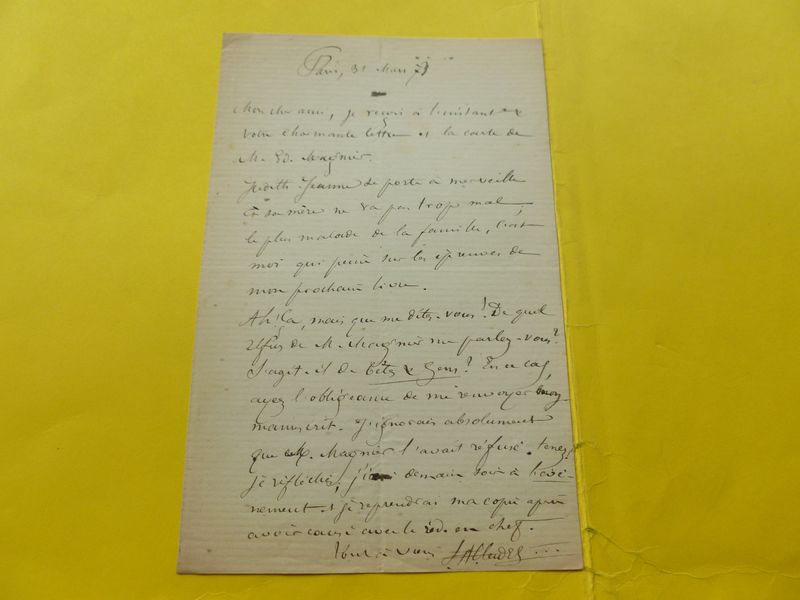 Paris, 31 Mars 79
Mon cher ami, je reçois à l'instant
votre charmante lettre et la carte de
M. Ed. Magnier.
Judith Jeanne se porte à merveille
Et sa mère ne va pas trop mal,
le plus malade de la famille, c'est
moi qui peine sur les épreuves de
mon prochain livre.
Ah! ça, mais que me dites-vous! De quel
refus de M. Magnier me parlez-vous?
S'agit-il de Bêtes & Gens? En ce cas,
ayez l'obligeance de me renvoyer mon
manuscrit. J'ignorais absolument
que M. Magnier l'avait réfusé. tenez!
je réfléchis, j'irai demain soir à l'évé-
nement et je reprendrai ma copie après
avoir causé avec le réd. en chef.
Tout à vous